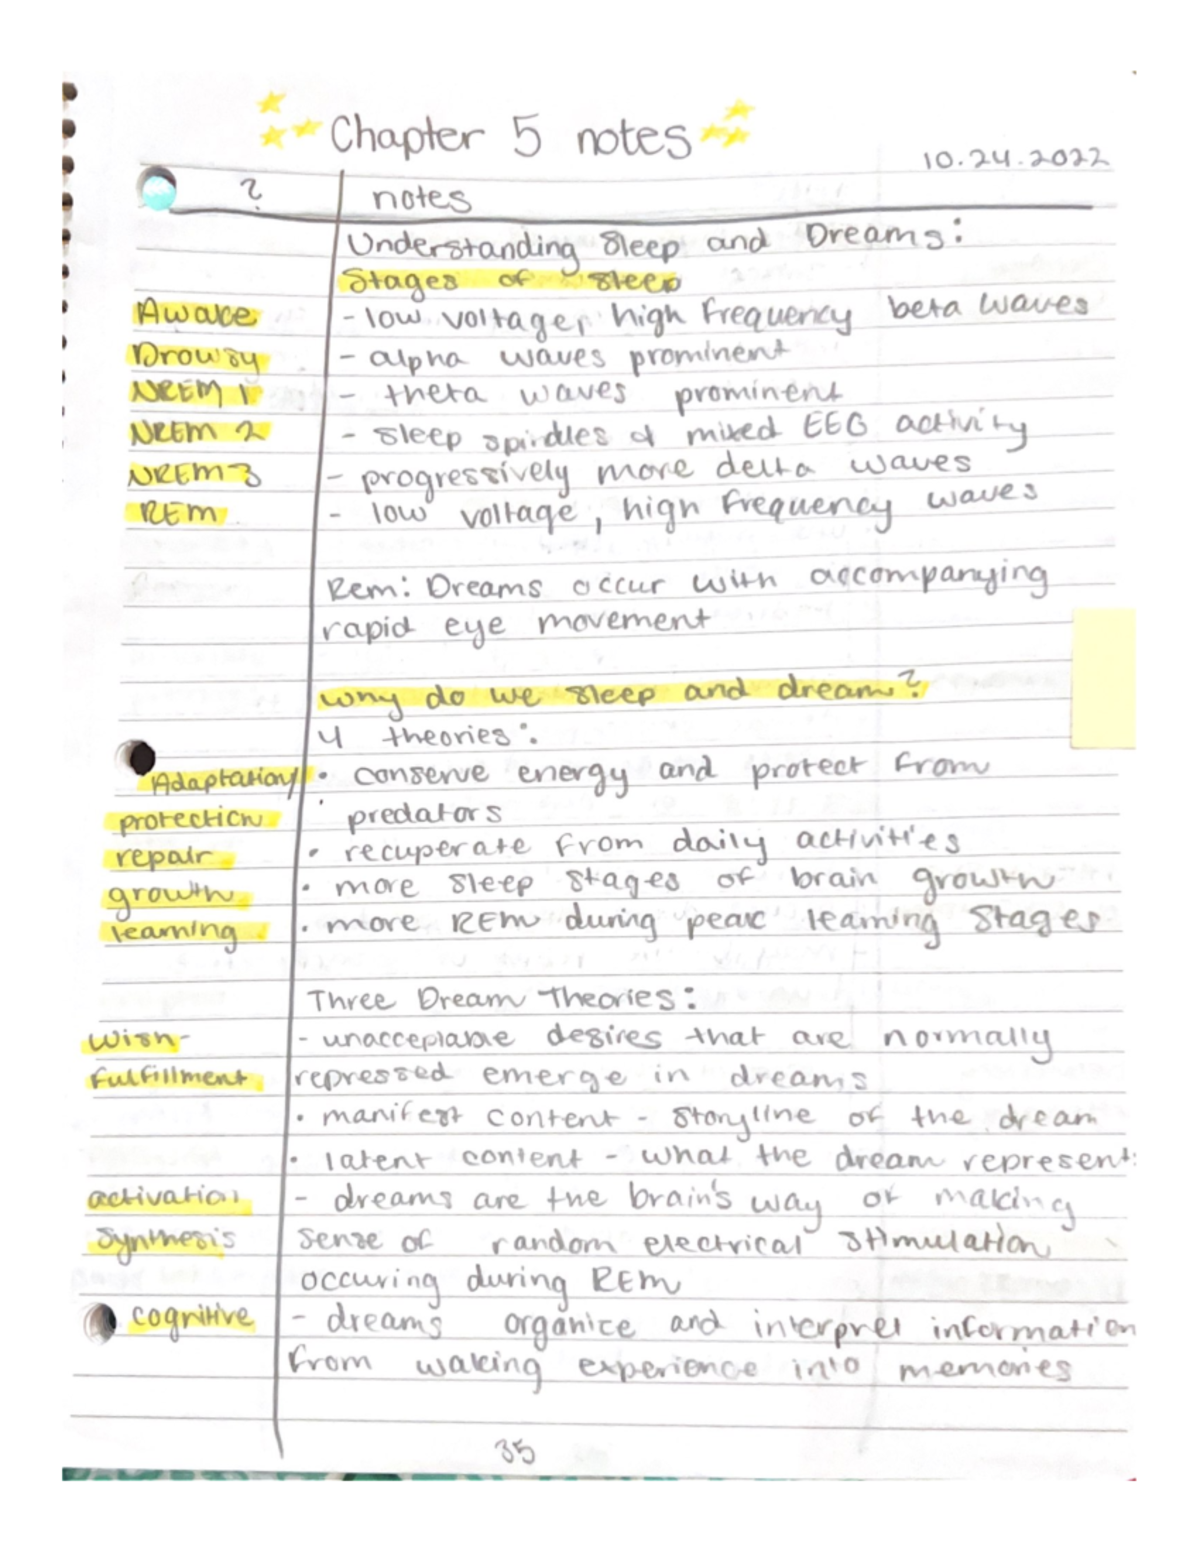 Chapter 5 notes
10.24.2022
? notes
Understanding Sleep and Dreams:
Stages of sleep
Awake - low voltage, high frequency beta waves
Drowsy - alpha waves prominent
NREM 1 - theta waves prominent
NREM 2 - sleep spindles & mixed EEG activity
NREM 3 - progressively more delta waves
REM - low voltage, high frequency waves
Rem: Dreams occur with accompanying
rapid eye movement
why do we sleep and dream?
4 theories:
Adaptation/ • conserve energy and protect from
protection predators
repair • recuperate from daily activities
growth • more sleep stages of brain growth
learning • more REM during peak learning stages
Three Dream Theories:
wish- - unacceptable desires that are normally
fulfillment repressed emerge in dreams
• manifest content - storyline of the dream
• latent content - what the dream represent
activation - dreams are the brain's way of making
synthesis sense of random electrical stimulation
occuring during REM
cognitive - dreams organice and interpret information
from waking experience into memories
35